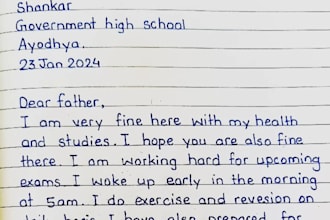 Shankar
Government high school
Ayodhya.
23 Jan 2024
Dear father,
I am very fine here with my health
and studies. I hope you are also fine
there. I am working hard for upcoming
exams. I woke up early in the morning
at 5am. I do exercise and revesion on
daily basis. I have also prepared for